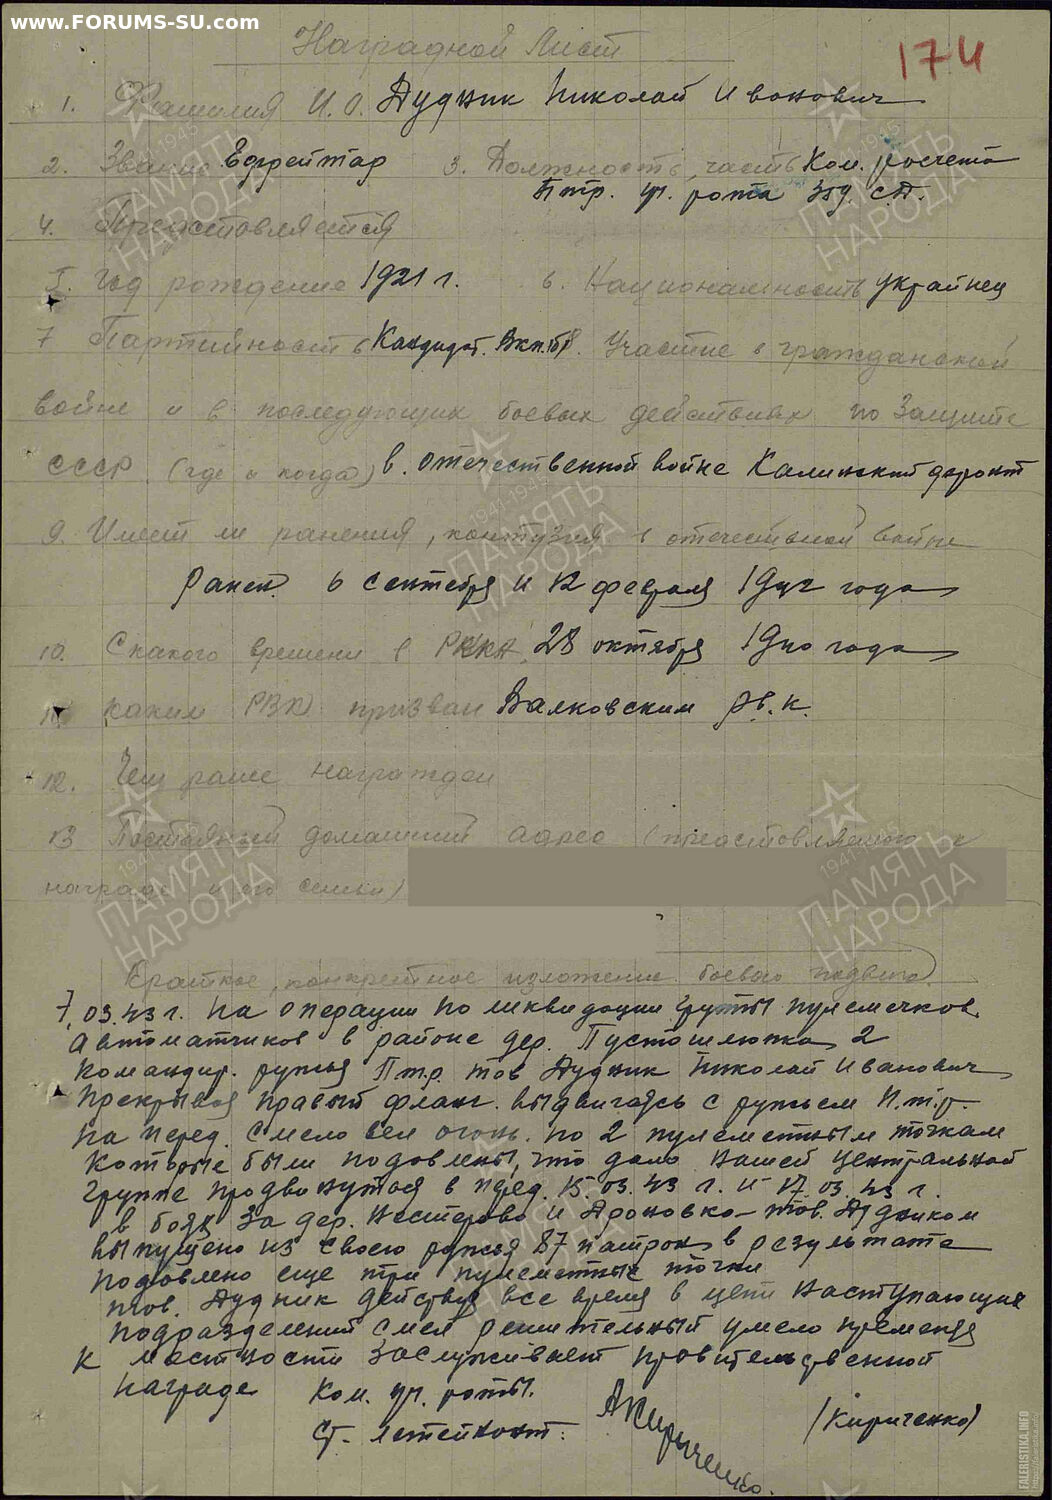 www.FORUMS-SU.com
Наградной Лист
174
1. Фамилия И. О. Дудник Николай Иванович
2. Звание Ефрейтор 3. Должность, часть Ком. расчета
Птр. уч. рота згу. с.д.
4. Представляется
5. Год рождения 1921 г. 6. Национальность украинец
7 Партийность Кандидат. Вкп(б). Участие в гражданской
войне и в последующих боевых действиях по Защите
СССР (где и когда) в. отечественной войне Калинский фронт
9. Имеет ли ранения, контузия в отечественной войне
Ранен. 6 сентября и 12 февраля 1942 года
10. С какого времени в РККА 28 октября 1940 года
11. каким РВК призван Валковским Рв.к.
12. Чем ранее награжден
13 Постоянный домашний адрес (представляемого к
награде и его семьи)
Краткое, конкретное изложение боевого подвига
7.03.43 г. На операции по ликвидации группы пулеметчков.
Автоматчиков в районе дер. Пустошлюпка 2
Командир. ружья Птр тов Дудник Николай Иванович
Прекрывая правый фланг. выдвигаясь с ружьем П.т.р.
на перед. Смело вел огонь. по 2 пулеметным точкам
Которые были подовлены, что дало нашей центральной
группе продвинуться в перед. 15.03.43 г. и 17.03.43 г.
в боях за дер. Нестерово и Ароновка тов. Дудником
выпущено из своего ружья 87 патрон в результате
подовлено еще три пулеметные точки
тов. Дудник действуя все время в цепи Наступающих
подразделений смел решительный умело применяя
к местности Заслуживает правительственной
награде Ком. уч. роты.
Ст. летейнант. АКириченко. (Кириченко)
FALERISTIKA.INFO
ПАМЯТЬ НАРОДА
1941-1945